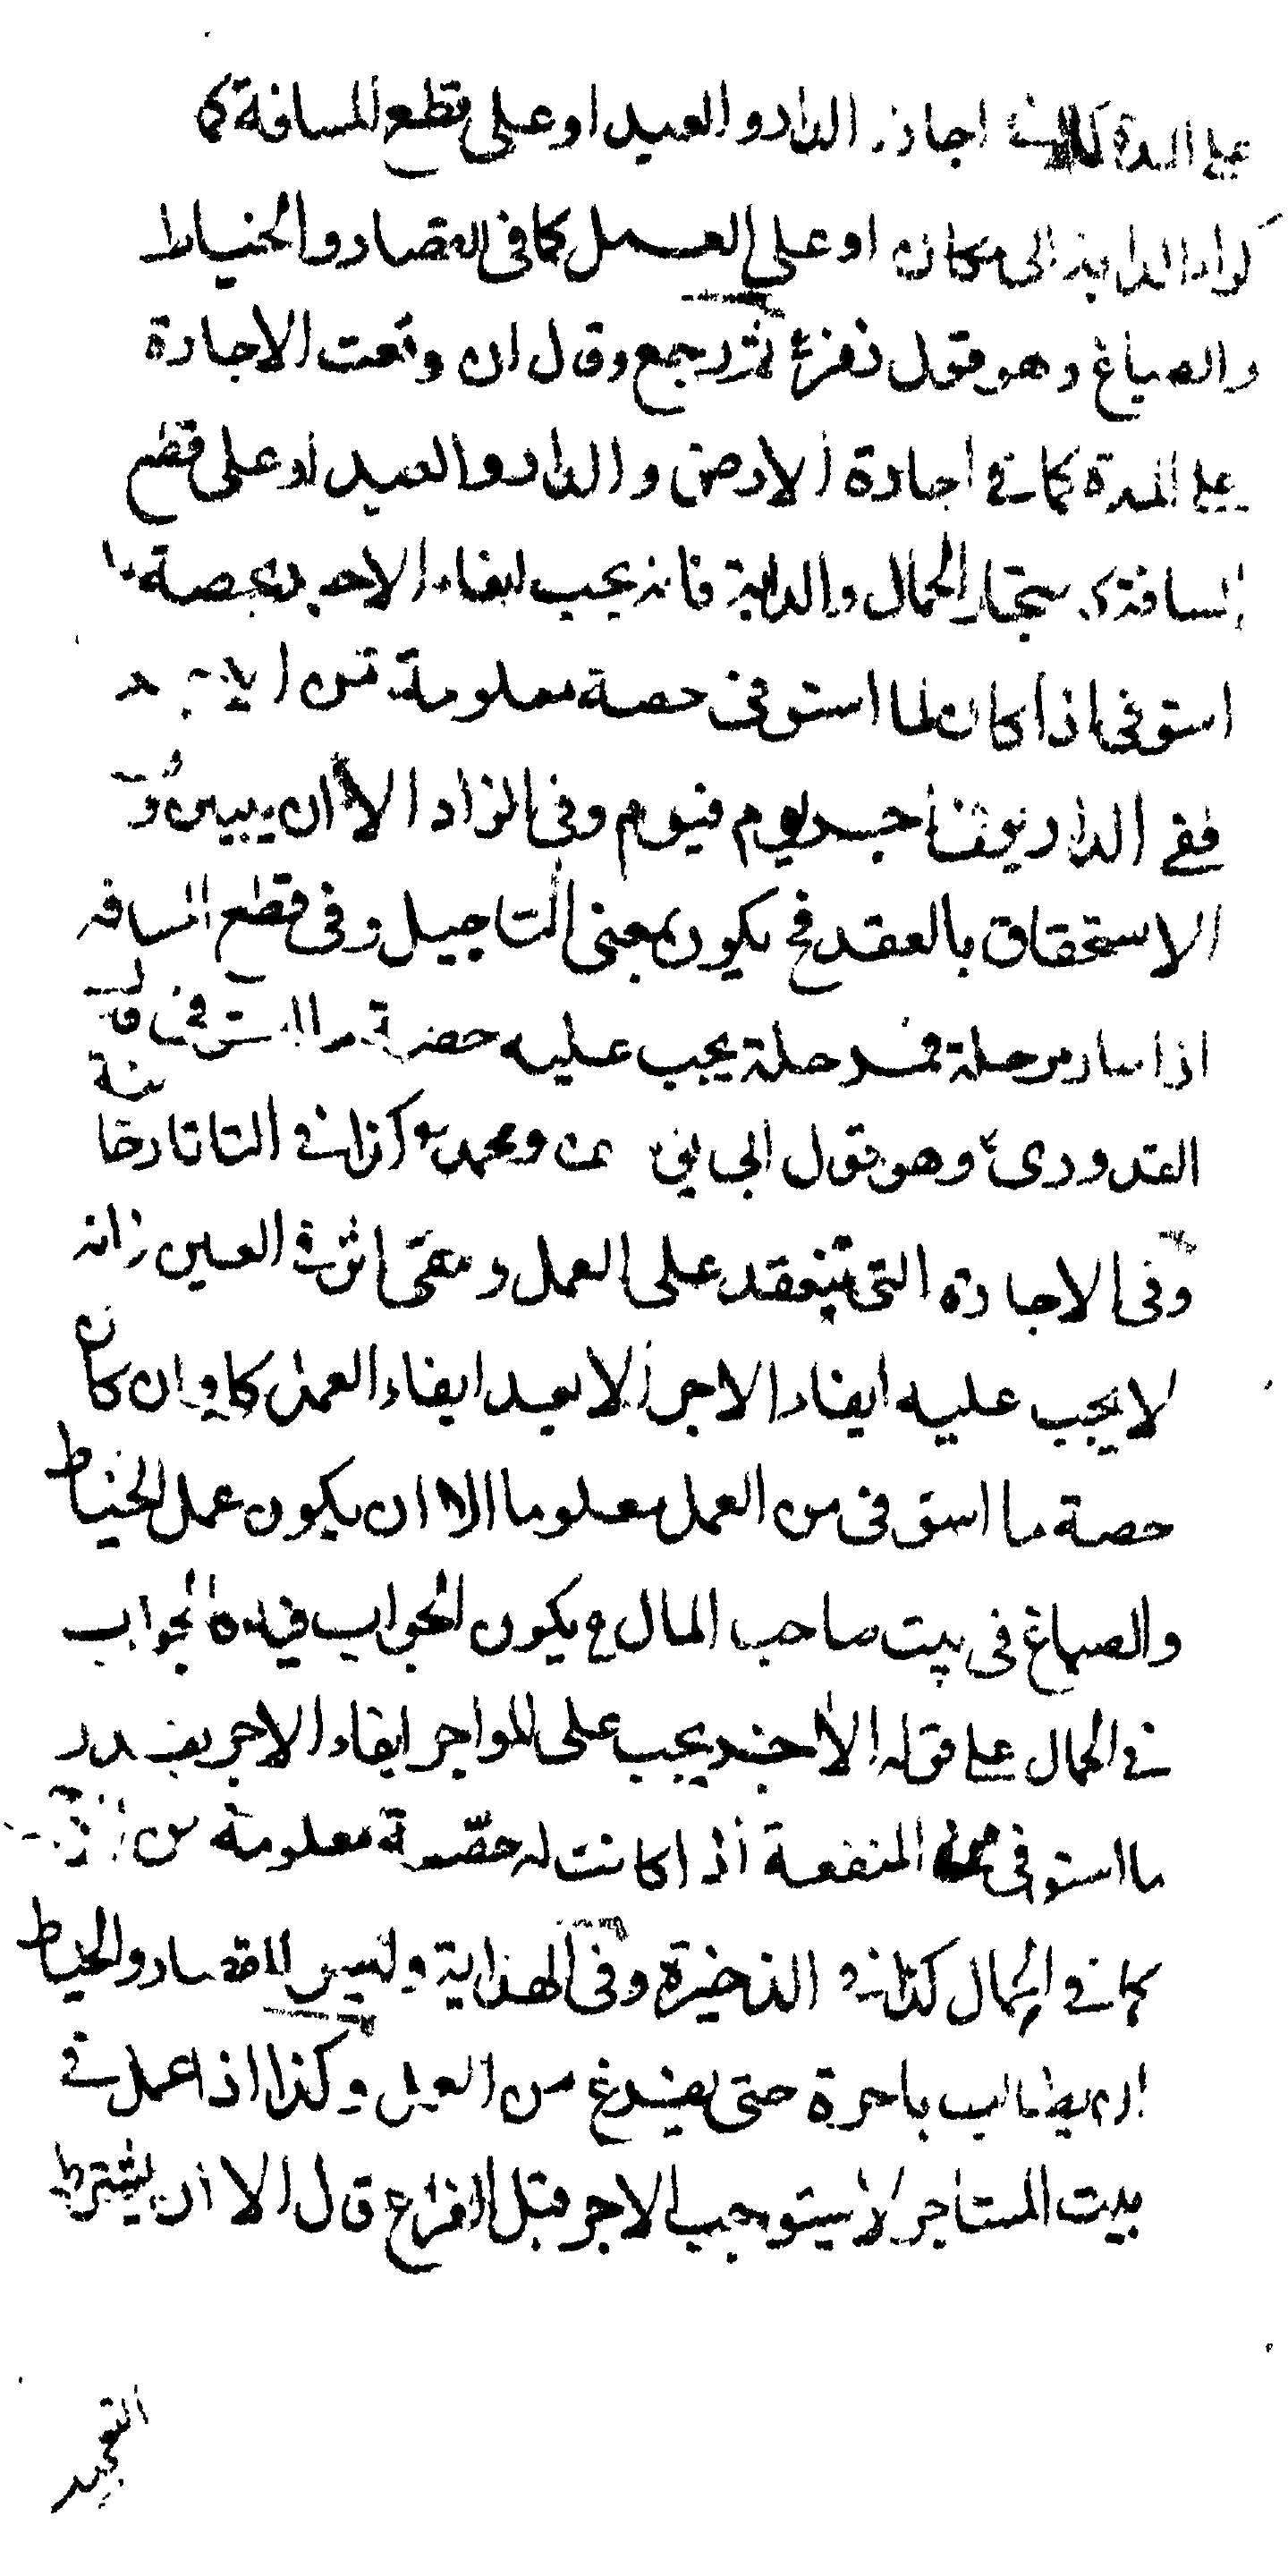 على المدة كما في اجارة الدار والعبد او على قطع المسافة كما
كراء الدابة الى مكان او على العمل كما في القصار والخياط
والصباغ وهو قول زفر ثم رجع وقال ان وقعت الاجارة
على المدة كما في اجارة الارض والدار والعبد او على قطع
المسافة كـ الجمال والدابة فانه يجب ايفاء الاجر بحصة ما
استوفى اذا كان لما استوفى حصة معلومة من الاجر
ففي الدار اجر يوم فيوم وفي الزاد الا ان يبين وقت
الاستحقاق بالعقد فح يكون بمعنى التاجيل وفي قطع المسافه
اذا سار مرحلة فمرحلة يجب عليه حصة ما استوفى
القدوري وهو قول ابي ومحمد كذا في التاتارخانية
وفي الاجارة التي تنعقد على العمل ويبقى اثر في العين فانه
لا يجب عليه ايفاء الاجر الا بعد ايفاء العمل كله وان كان
حصة ما استوفى من العمل معلوما الا ان يكون عمل الخياط
والصباغ في بيت صاحب المال ح يكون الجواب فيه كالجواب
في الحمال على قوله الاخر يجب على المواجر ايفاء الاجر بقدر
ما استوفى المنفعة اذا كانت له حصة معلومة من
كما في الحمال كذا في الذخيرة وفي الهداية وليس للقصار والخياط
ان يطالب باجرة حتى يفرغ من العمل وكذا اذا عمل في
بيت المستاجر لا يستوجب الاجر قبل الفراغ قال الا ان يشترط
التعجيل